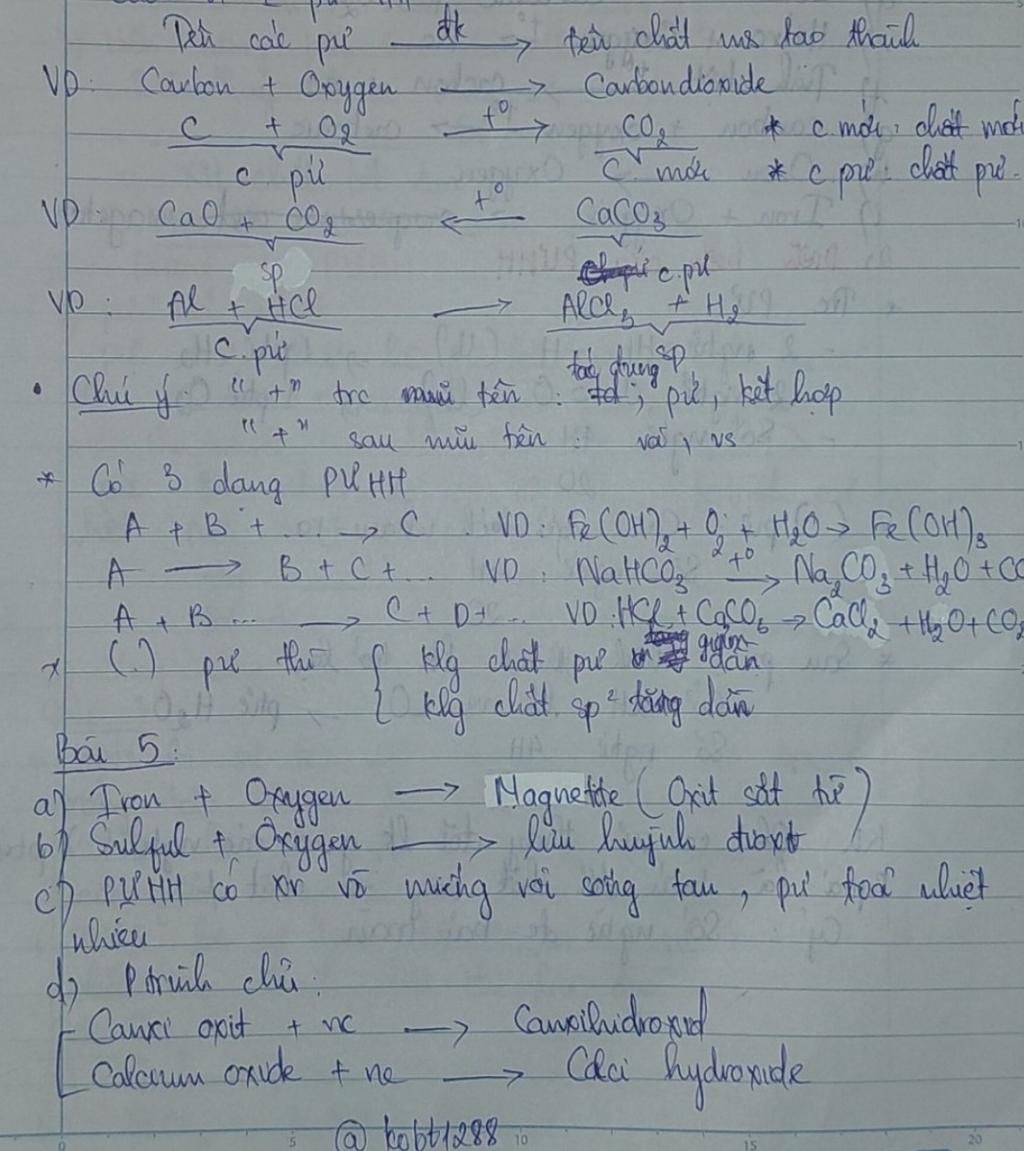 Tên các pư đk → tên chất ms tạo thành
VD: Carbon + Oxygen → Carbondioxide
C + O2 t° → CO2 * c mới: chất mới
c pứ C. mới * c pư: chất pư.
VD: CaO + CO2 ← t° CaCO3
sp c.pư
VD: Al + HCl → AlCl3 + H2
C. pứ sp
tác dụng
• Chú ý: "+" trc mũi tên: td, pứ, kết hợp
"+" sau mũi tên: và, vs
* Có 3 dạng PƯHH
A + B + ... → C VD: Fe(OH)2 + O2 + H2O → Fe(OH)3
A → B + C + ... VD: NaHCO3 t° → Na2CO3 + H2O + CO
A + B ... → C + D + .. VD: HCl + CaCO3 → CaCl2 + H2O + CO2
* (.) pư thì { klg chất pư giảm dần
klg chất sp² tăng dần
Bài 5:
a) Iron + Oxygen → Magnetite (Oxit sắt từ)
b) Sulful + Oxygen → lưu huỳnh đioxit
c) PƯHH có xr vỏ miếng vôi sống tan, pứ toả nhiệt
nhiều
d) Ptrình chữ:
Canxi oxit + nc → Canxihidroxid
Calcium oxide + nc → Calci hydroxide
@kobt1288